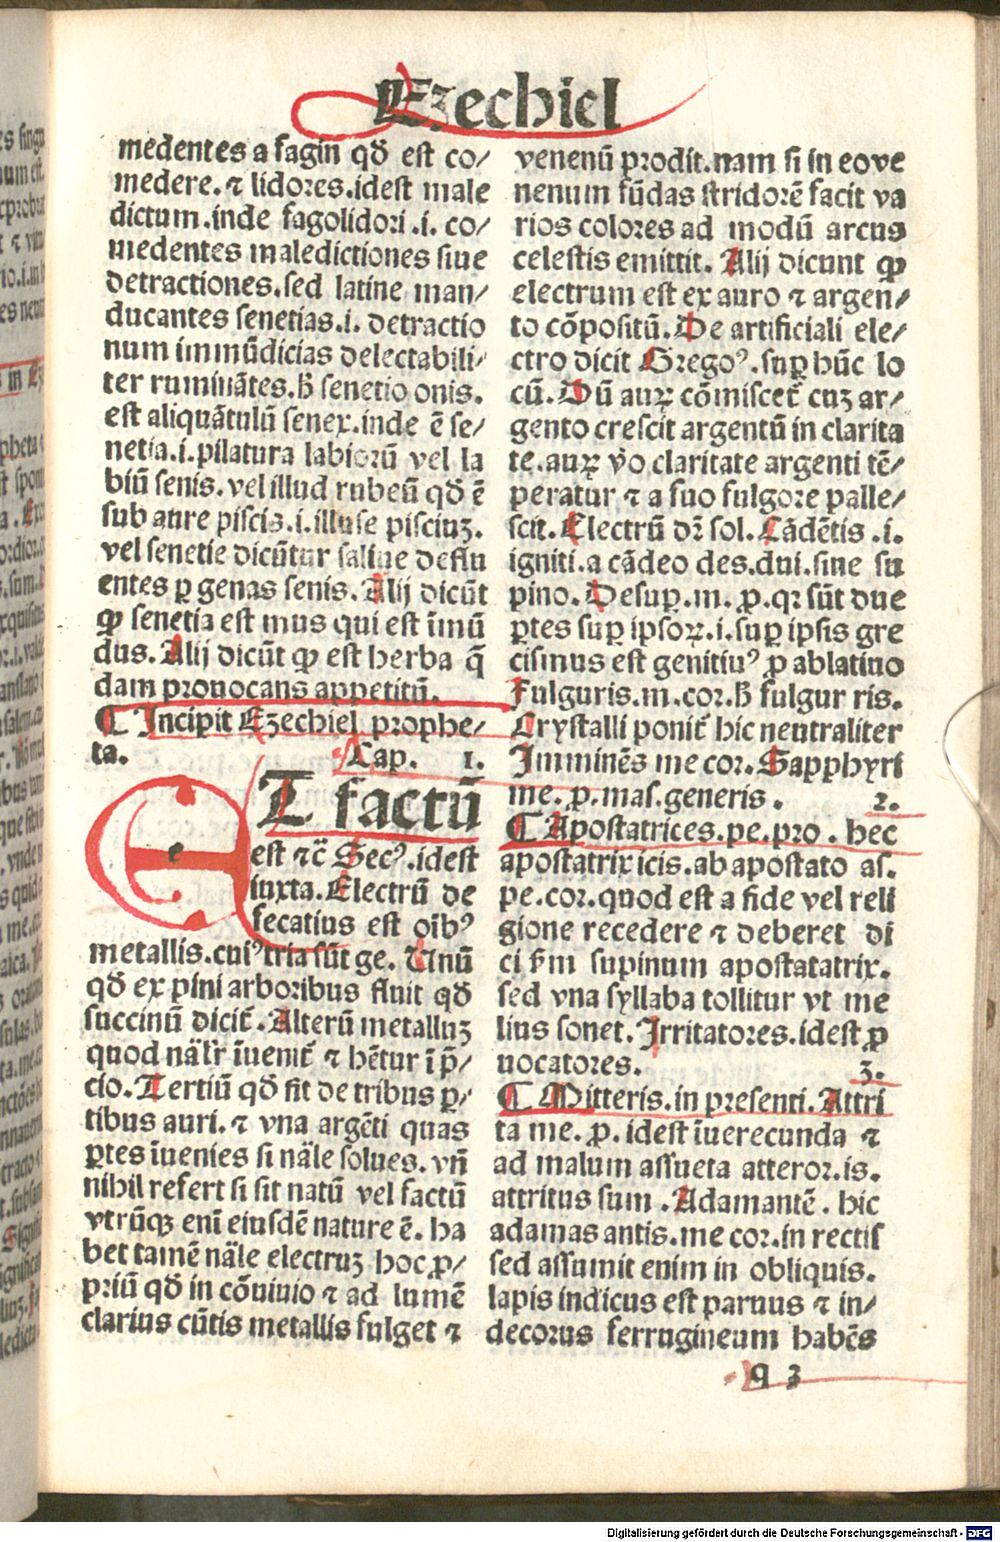 Ezechiel
medentes a fagin qđ est co/
medere. ⁊ lidores. idest male
dictum. inde fagolidori .i. co/
medentes maledictiones siue
detractiones. sed latine man/
ducantes senetias. i. detractio
num immūdicias delectabili/
ter ruminātes. h̄ senetio onis.
est aliquātulū senex. inde ē se/
netia. i. pilatura labiorū vel la
biū senis. vel illud rubeū qđ ē
sub aure piscis. i. illuse pisciuꝫ.
vel senetie dicūtur saliue deflu
entes ꝑ genas senis. Alij dicūt
ꝙ senetia est mus qui est īmū
dus. Alij dicūt ꝙ est herba q̄
dam prouocans appetitū.
¶ Incipit Ezechiel prophe/
ta. Cap. 1.
ET factū
est ⁊c̄ Secꝰ. idest
iuxta. Electrū de
fecatius est oībꝰ
metallis. cuiꝰ tria sūt ge. Unū
qđ ex pini arboribus fluit qđ
succinū dicit̄. Alterū metalluꝫ
quod nāl'r īuenit̄ ⁊ hētur ī p̄/
cio. Tertiū qđ fit de tribus ꝑ/
tibus auri. ⁊ vna argēti quas
ꝑtes īuenies si nāle solues. vn̄
nihil refert si sit natū vel factū
vtrūqꝫ enī eiusdē nature ē. ha
bet tamē nāle electruꝫ hoc ꝓ/
priū qđ in cōuiuio ⁊ ad lumē
clarius cūtis metallis fulget ⁊
venenū prodit. nam si in eo ve
nenum fūdas stridorē facit va
rios colores ad modū arcus
celestis emittit. Alij dicunt ꝙ
electrum est ex auro ⁊ argen/
to cōpositū. De artificiali ele/
ctro dicit Gregoꝰ. suꝑ hūc lo
cū. Dū auꝝ cōmiscet̄ cuꝫ ar/
gento crescit argentū in clarita
te. auꝝ v̊o claritate argenti tē/
peratur ⁊ a suo fulgore palle/
scit. Electrū dr̄ sol. Cādētis .i.
igniti. a cādeo des. dui. sine su
pino. Desuꝑ. m. ꝓ. qꝛ sūt due
ꝑtes suꝑ ipsoꝝ. i. suꝑ ipsis gre
cismus est genitiuꝰ ꝓ ablatiuo
Fulguris. m. cor. h̄ fulgur ris.
Crystalli ponit̄ hic neutraliter
Imminēs me cor. Sapphyri
me. ꝓ. mas. generis. 2.
¶ Apostatrices. pe. pro. hec
apostatrix icis. ab apostato as.
pe. cor. quod est a fide vel reli
gione recedere ⁊ deberet di
ci fm̄ supinum apostatatrix.
sed vna syllaba tollitur vt me
lius sonet. Irritatores. idest ꝓ
uocatores. 3.
¶ Mitteris. in presenti. Attri
ta me. ꝓ. idest īuerecunda ⁊
ad malum assueta atteror. is.
attritus sum. Adamantē. hic
adamas antis. me cor. in rectis
sed assumit enim in obliquis.
lapis indicus est paruus ⁊ in/
decorus ferrugineum habēs
q 3
Digitalisierung gefördert durch die Deutsche Forschungsgemeinschaft - DFG